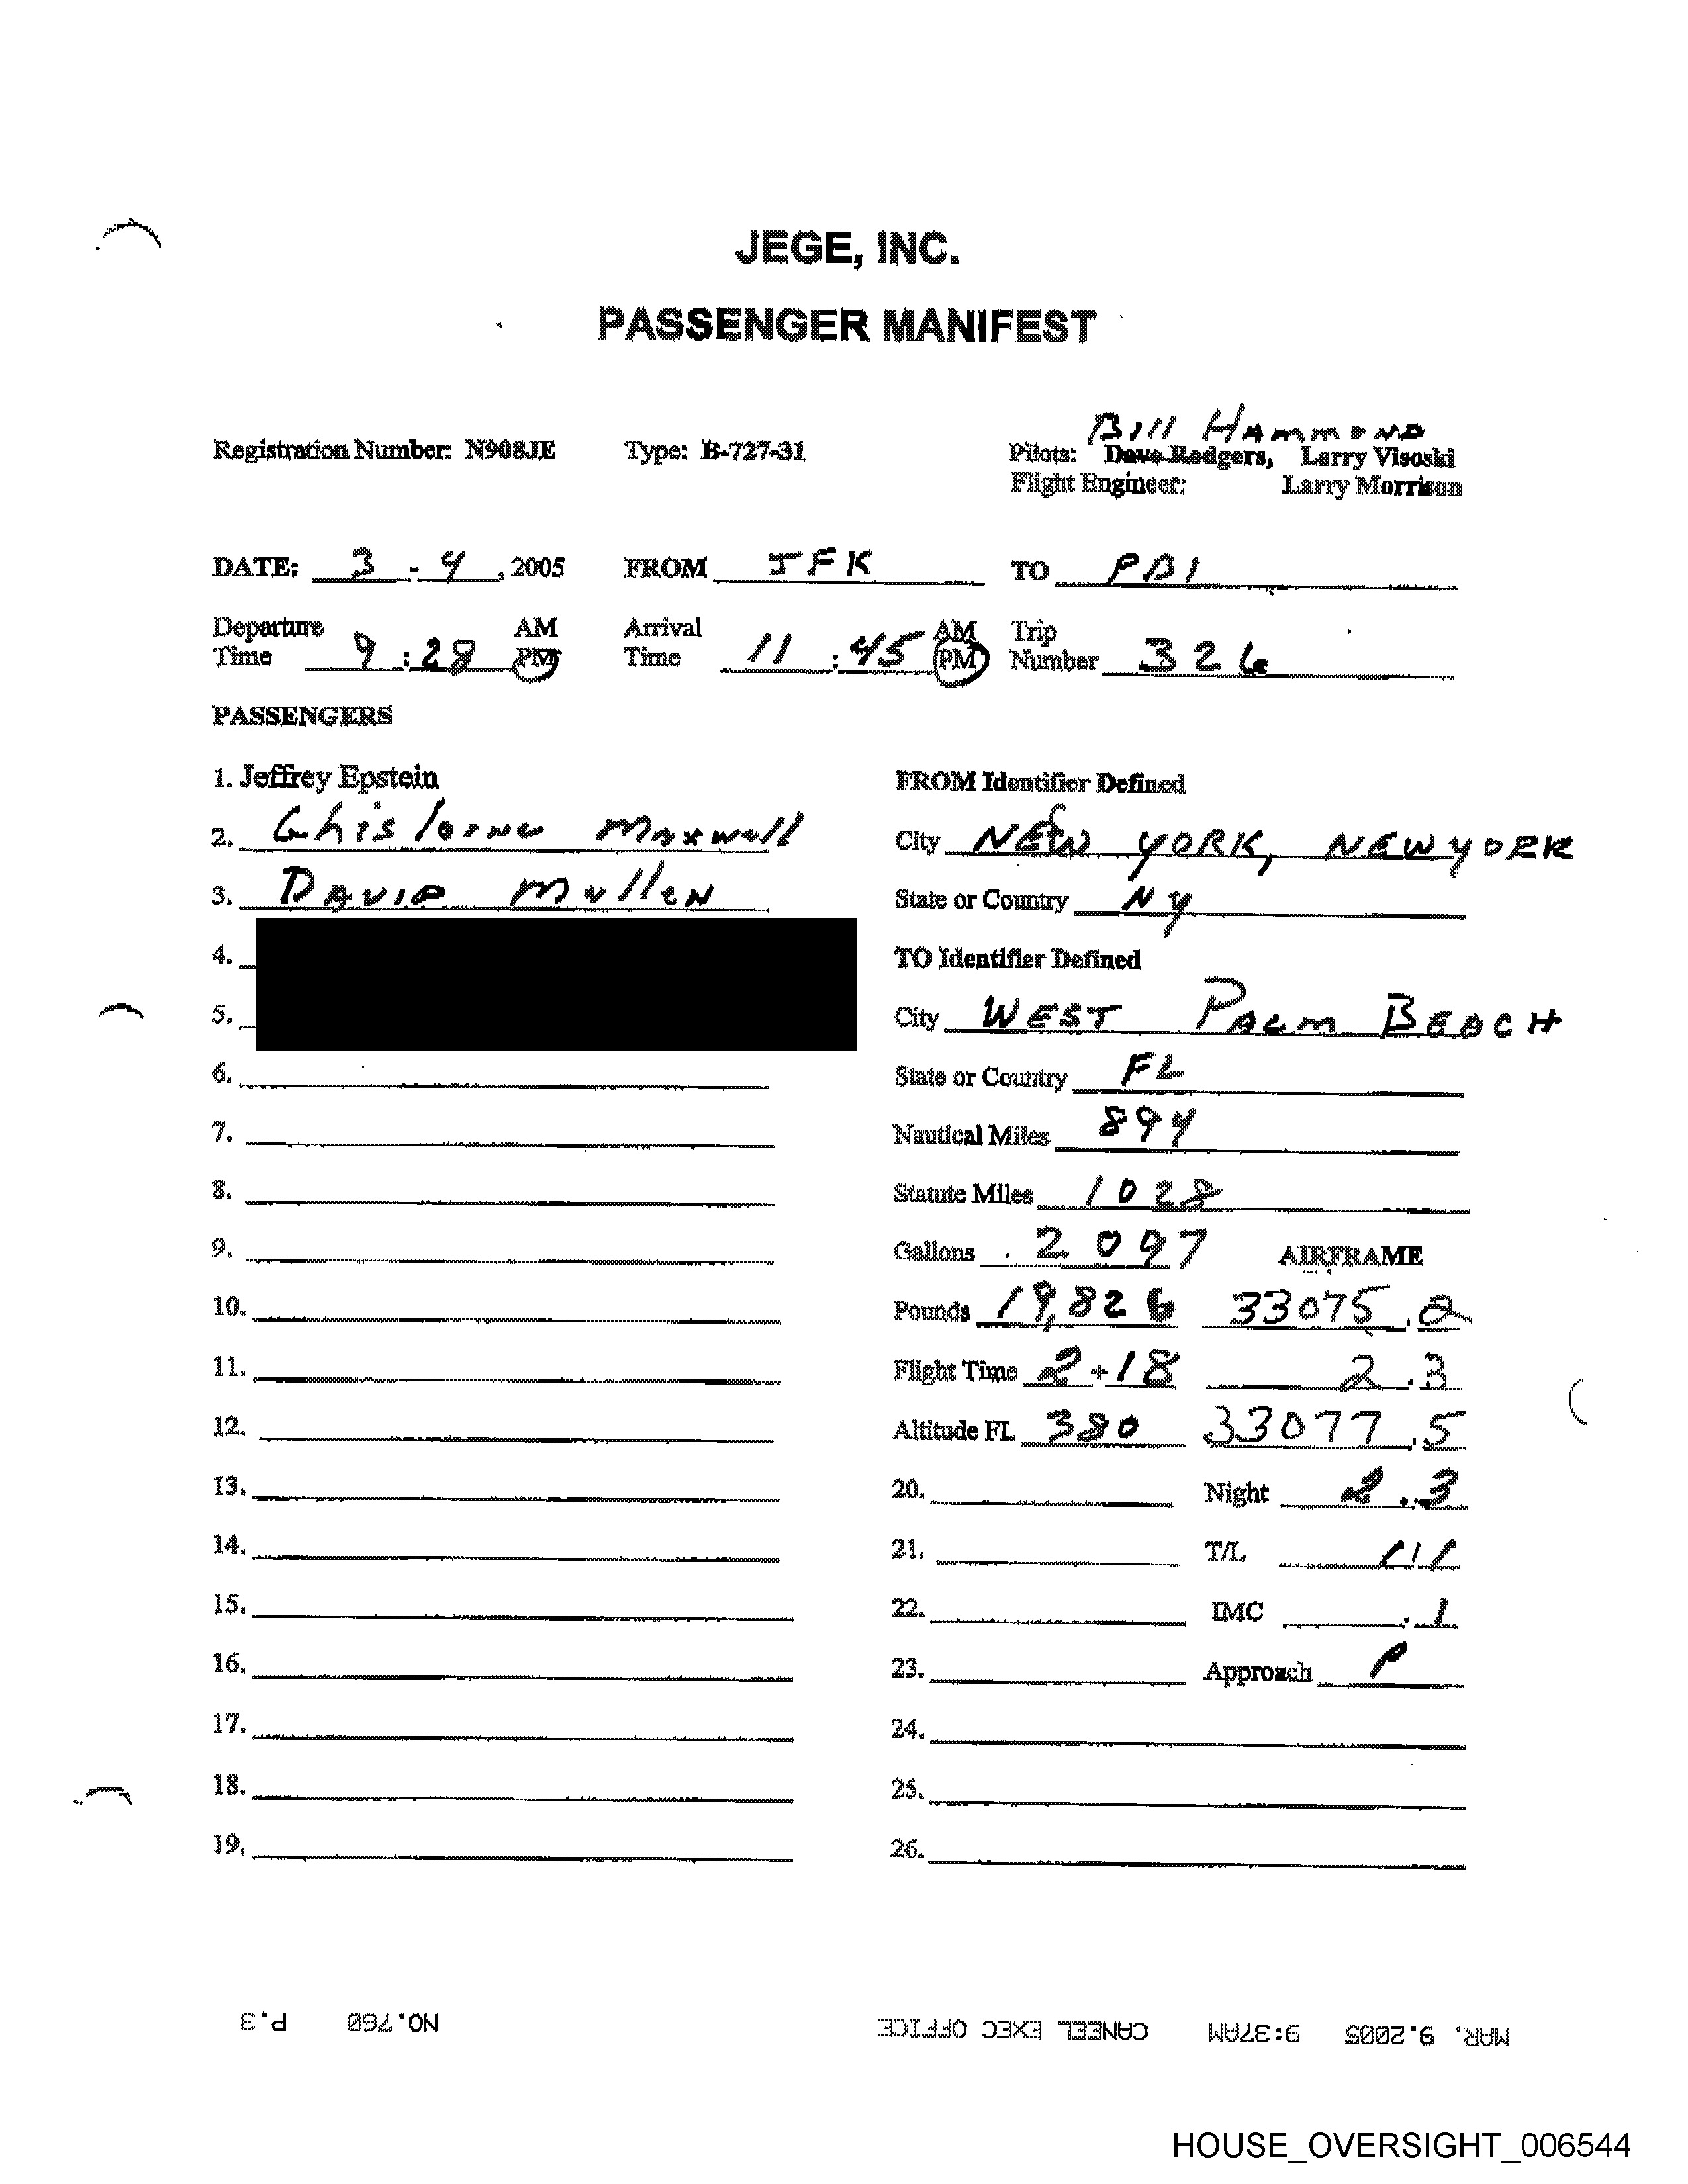 JEGE, INC.
PASSENGER MANIFEST
Bill Hammond
Registration Number: N908JE Type: B-727-31 Pilots: Dave Rodgers, Larry Visoski
Flight Engineer: Larry Morrison
DATE: 3 - 4, 2005 FROM JFK TO PBI
Departure Time 9:28 AM PM Arrival Time 11:45 AM PM Trip Number 326
PASSENGERS
1. Jeffrey Epstein FROM Identifier Defined
2. Ghislaine Maxwell City NEW YORK, NEWYORK
3. David Mullen State or Country NY
4. TO Identifier Defined
5. City WEST PALM BEACH
6. State or Country FL
7. Nautical Miles 894
8. Statute Miles 1028
9. Gallons 2097 AIRFRAME
10. Pounds 19,826 33075.2
11. Flight Time 2+18 2.3
12. Altitude FL 380 33077.5
13. 20. Night 2.3
14. 21. T/L 1/1
15. 22. IMC .1
16. 23. Approach
17. 24.
18. 25.
19. 26.
MAR. 9.2005 9:37AM CANEEL EXEC OFFICE NO.760 P.3
HOUSE_OVERSIGHT_006544